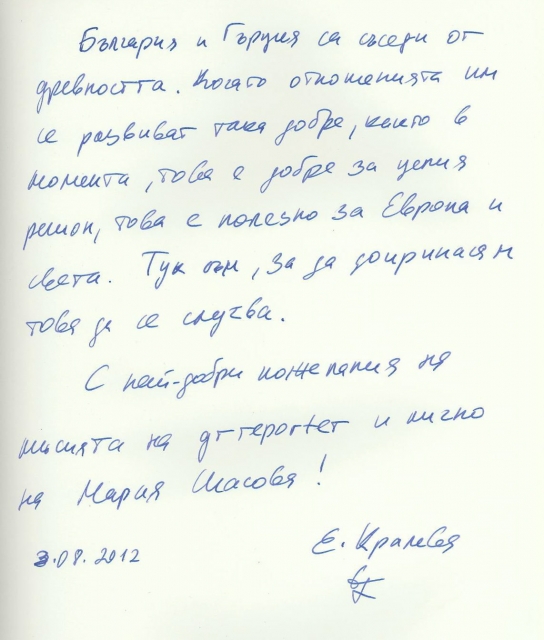 България и Гърция са съседи от
древността. Когато отношенията им
се развиват така добре, както в
момента, това е добре за целия
регион, това е полезно за Европа и
света. Тук съм, за да допринасям
това да се случва.
С най-добри пожелания на
мисията на grreporter и лично
на Мария
3.08.2012 Е. Кралева